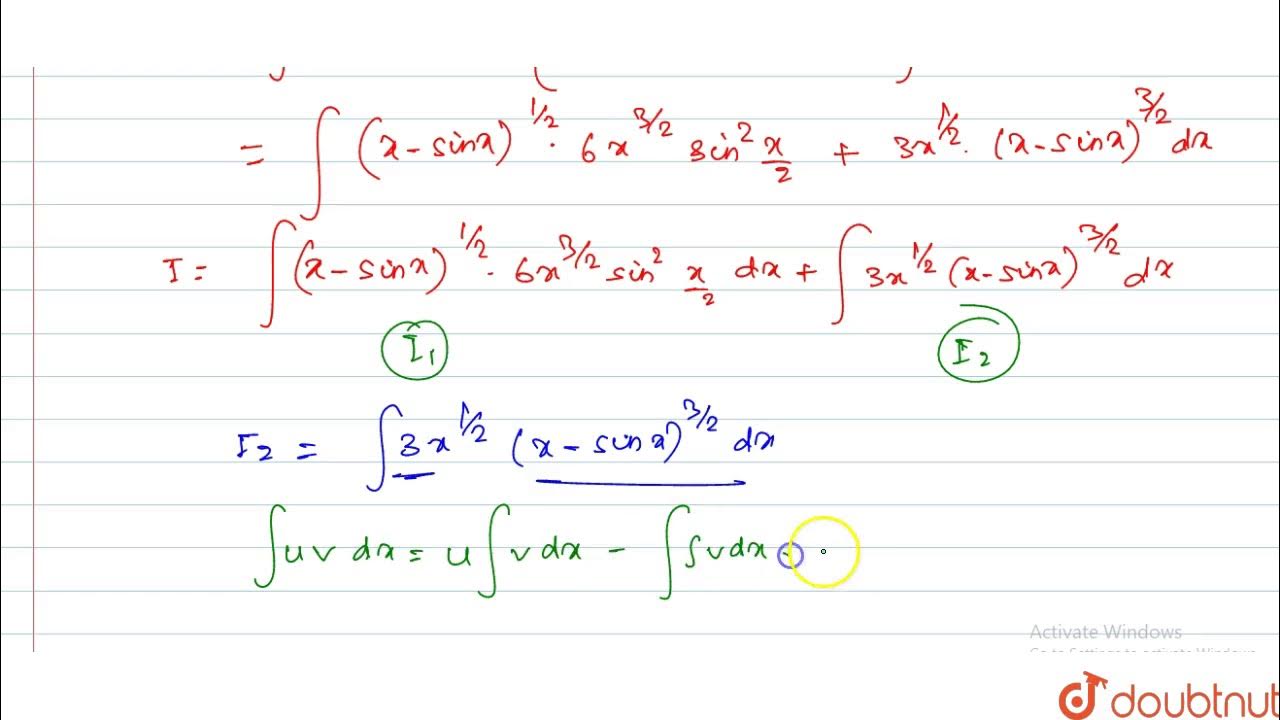 = ∫ (x - sinx)^1/2 · 6x^3/2 sin^2 x/2 + 3x^1/2 · (x - sinx)^3/2 dx
I = ∫ (x - sinx)^1/2 · 6x^3/2 sin^2 x/2 dx + ∫ 3x^1/2 (x - sinx)^3/2 dx
I1 I2
I2 = ∫ 3x^1/2 (x - sinx)^3/2 dx
∫ uv dx = u ∫ v dx - ∫ ∫ v dx ·
Activate Windows
Go to Settings to activate Windows
doubtnut